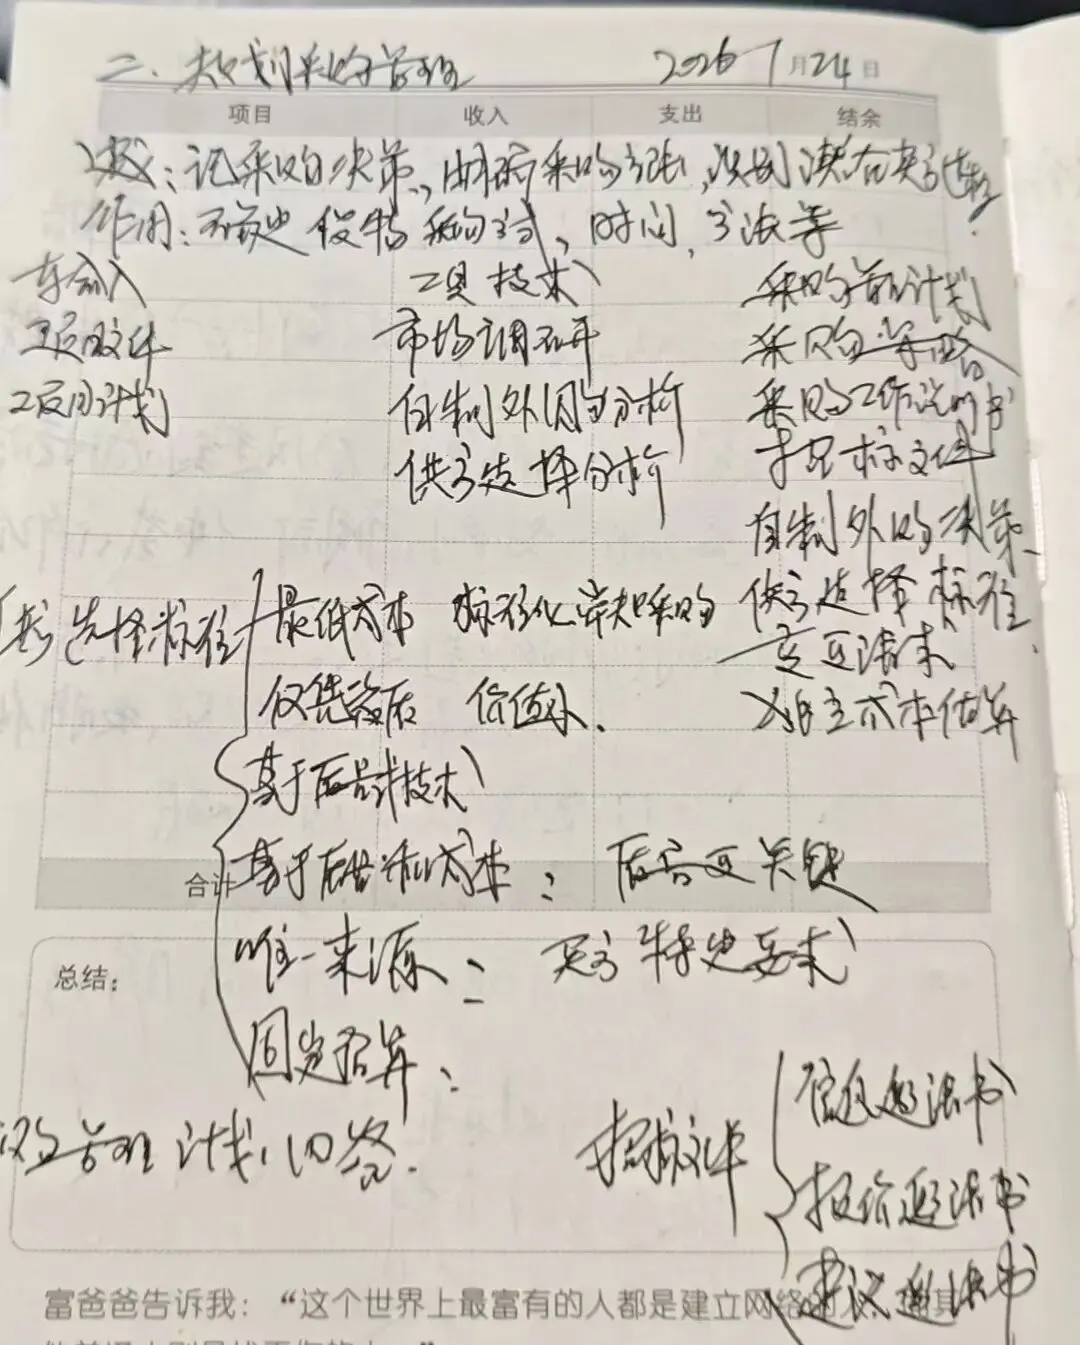 二、规划采购管理 2026 1月24日
项目 收入 支出 结余
定义：记录采购决策、明确采购方法，识别潜在卖方过程
作用：确定 货物采购方式，时间，方法等
输入 工具技术 采购管理计划
项目文件 市场调研 采购策略
项目计划 自制外购分析 采购工作说明书
供方选择分析 招标文件
自制外购决策
供方选择标准 最低成本 标准化常规采购 供方选择标准
变更请求
仅凭资质 价值小 独立成本估算
基于质量技术
合计 基于质量和成本： 质量更关键
唯一来源： 买方特定要求
总结：
固定预算：
采购管理计划内容 招标文件 信息邀请书
报价邀请书
建议邀请书
富爸爸告诉我：“这个世界上最富有的人都是建立网络的人，其